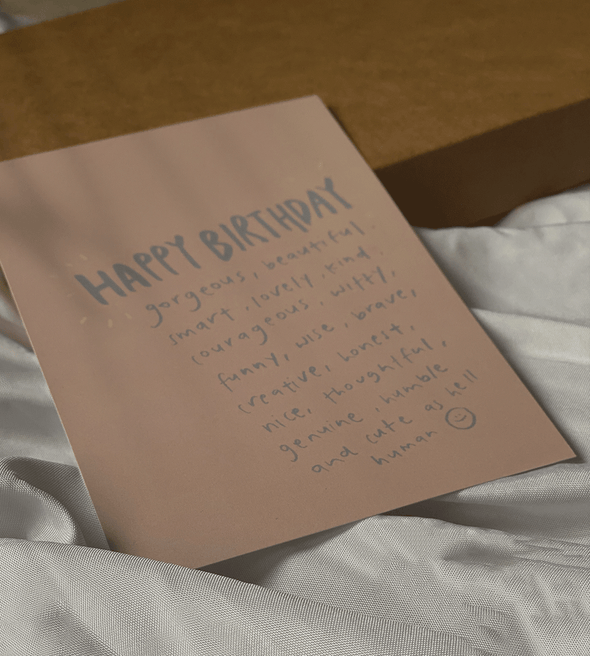 HAPPY BIRTHDAY
gorgeous, beautiful,
smart, lovely, kind,
courageous, witty,
funny, wise, brave,
creative, honest,
nice, thoughtful,
genuine, humble
and cute as hell
human